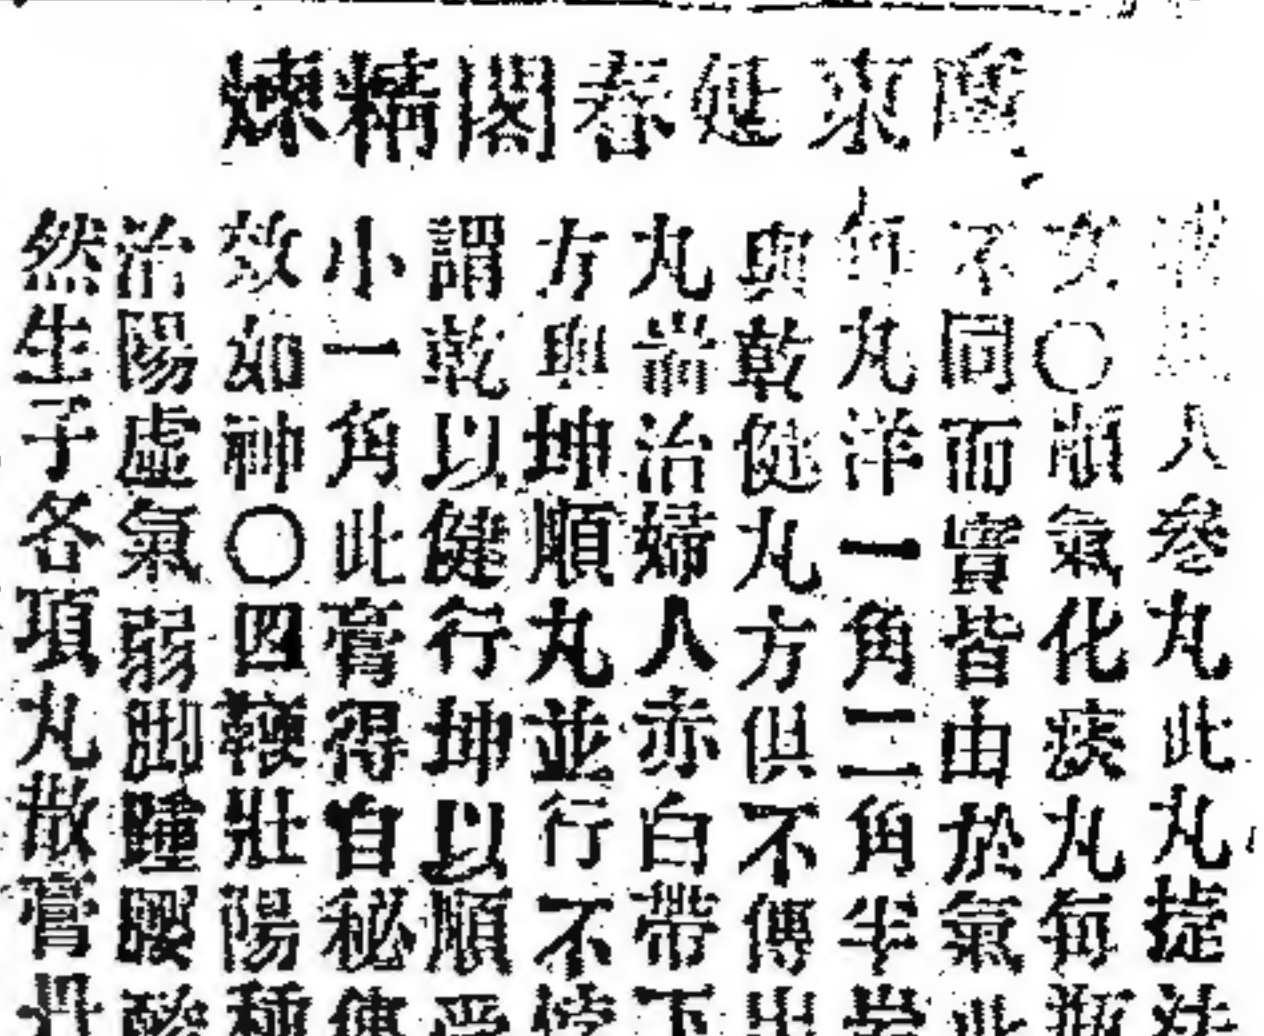 廣東延春閣精煉
人參丸此丸捷
女〇順氣化痰丸每瓶
不同而實皆由於氣此
丸洋一角二角半
與乾健丸方俱不傳出
丸耑治婦人赤白帶下
方與坤順丸並行不悖
謂乾以健行坤以順
小一角此膏得自秘傳
效如神〇四鞭壯陽種
治陽虛氣弱脚踵腰酸
然生子各項丸散膏丹